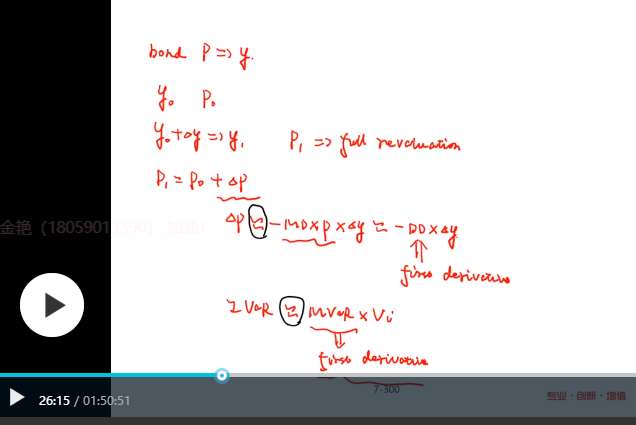 bond P => y.
y₀ P₀
y₀+Δy => y₁ P₁ => full revaluation
P₁ = P₀ + ΔP
ΔP ≈ -MD×P×Δy ≈ -DD×Δy
first derivative
IVaR ≈ MVaR × Vi
first derivative
7-300
专业·创新·增值
26:15 / 01:50:51